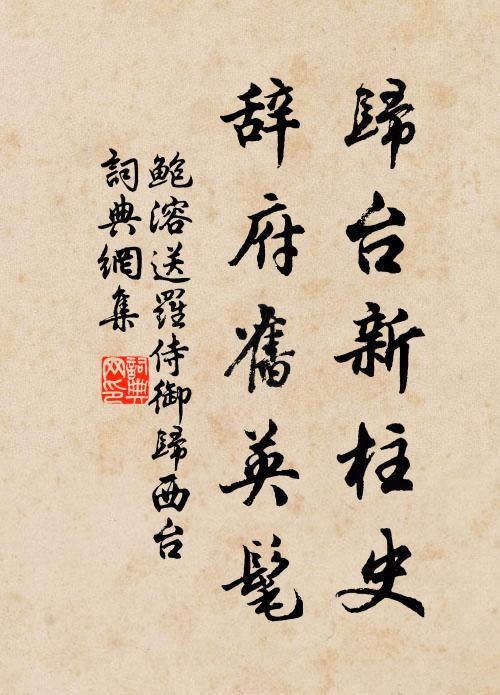 歸台新柱史
辞府舊英髦
鮑溶送羅侍御歸西台
詞典網集
詞典網印